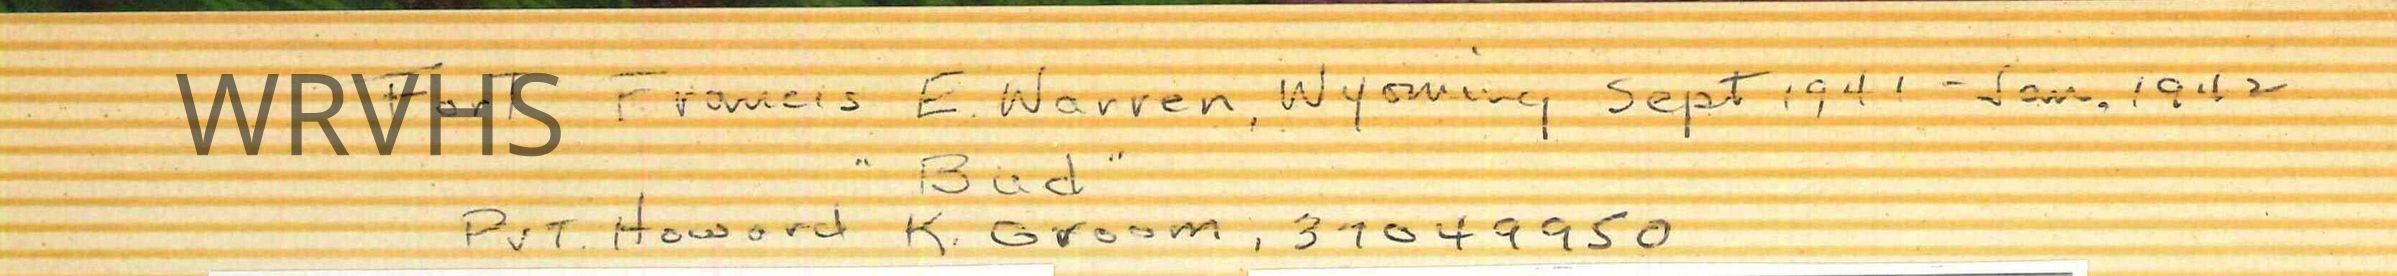 WRVHS
Fort Francis E. Warren, Wyoming Sept 1941 - Jan. 1942
"Bud"
Pvt. Howard K. Groom, 37049950